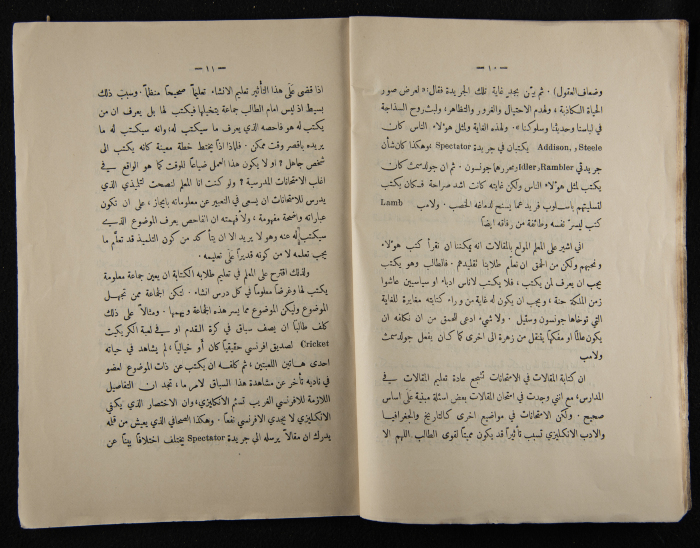 — ١٠ —
وضعاف العقول) . ثم بيّن بجدرٍ غاية تلك الجريدة فقال: « لعرض صور
الحياة الكاذبة ، ولهدم الاحتيال والغرور والتظاهر ، ولبث روح السذاجة
في لباسنا وحديثنا وسلوكنا » . ولهذه الغاية ولمثل هؤلاء الناس كان
Steele و Addison, يكتبان في جريدة Spectator وهكذا كان شأن
جريدتي Rambler و Idler ومحررها جونسون . ثم ان جولدسمث كان
يكتب لمثل هؤلاء الناس ولكن غايته كانت اشد صراحة فكان يكتب
لتسليتهم باسلوب فريد عما يسنح لدماغه الخصب . ولامب Lamb
كتب ليسرّ نفسه وطائفة من رفاقه ايضاً
اني اشير على المعلم المولع بالمقالات انه يمكننا ان نقرأ كتب هؤلاء
ونحبهم ولكن من الحمق ان نعلّم طلابنا تقليدهم . فالطالب وهو يكتب
يجب ان يعرف لمن يكتب ، فلا يكتب لاناس ادباء او سياسيين عاشوا
زمن الملكة حنة ، ويجب ان يكون له غاية من وراء كتابته مغايرة للغاية
التي توخاها جونسون وستيل . ولا شيء ادعى للحمق من ان نكلفه ان
يكون عالماً او مفكهاً يتنقل من زهرة الى اخرى كما كان يفعل جولدسمث
ولامب
ان كتابة المقالات في الامتحانات تشجع عادة تعليم المقالات في
المدارس ، مع انني وجدت في امتحان المقالات بعض اسئلة مبنية على اساس
صحيح . ولكن الامتحانات في مواضيع اخرى كالتاريخ والجغرافيا
والادب الانكليزي تسبب تأثيراً قد يكون مميتاً لقوى الطالب اللهم الا
— ١١ —
اذا قضى على هذا التأثير تعليم الانشاء تعليماً صحيحاً منظماً . وسبب ذلك
بسيط اذ ليس امام الطالب جماعة يتخيلها فيكتب لها بل يعرف ان من
يكتب له هو فاحصه الذي يعرف ما سيكتب له ، وانه سيكتب له ما
يريده باقصر وقت ممكن . فلماذا اذاً يختط خطة معينة كانه يكتب الى
شخص جاهل ؟ او لا يكون هذا العمل ضياعاً للوقت كما هو الواقع في
اغلب الامتحانات المدرسية ؟ ولو كنت انا المعلم لنصحت لتلميذي الذي
يدرس للامتحان ان يسعى في التعبير عن معلوماته بايجاز ، على ان تكون
عباراته واضحة مفهومة ، ولأفهمته ان الفاحص يعرف الموضوع الذي
سيكتب له عنه وهو لا يريد الا ان يتأكد من كون التلميذ قد تعلّم ما
يجب تعلمه لا من كونه قديراً على تعليمه .
ولذلك اقترح على المعلم في تعليم طلابه الكتابة ان يعين جماعة معلومة
يكتب لها وغرضاً معلوماً في كل درس انشاء . لتكن الجماعة ممن تجهل
الموضوع وليكن الموضوع مما يسر هذه الجماعة ويهمها . ومثالاً على ذلك
كلف طالباً ان يصف سباق في كرة القدم او في لعبة الكريكيت
Cricket لصديق افرنسي حقيقياً كان أو خيالياً ، لم يشاهد في حياته
احدى هاتين اللعبتين ، ثم كلفه ان يكتب عن ذات الموضوع لعضو
في ناديه تأخر عن مشاهدة هذا السباق لامر ما ، تجد ان التفاصيل
اللازمة للافرنسي الغريب تسئم الانكليزي ، وان الاختصار الذي يكفي
الانكليزي لا يجدي الافرنسي نفعاً . وهكذا الصحافي الذي يعيش من قلمه
يدرك ان مقالاً يرسله الى جريدة Spectator يختلف اختلافاً بيناً عن